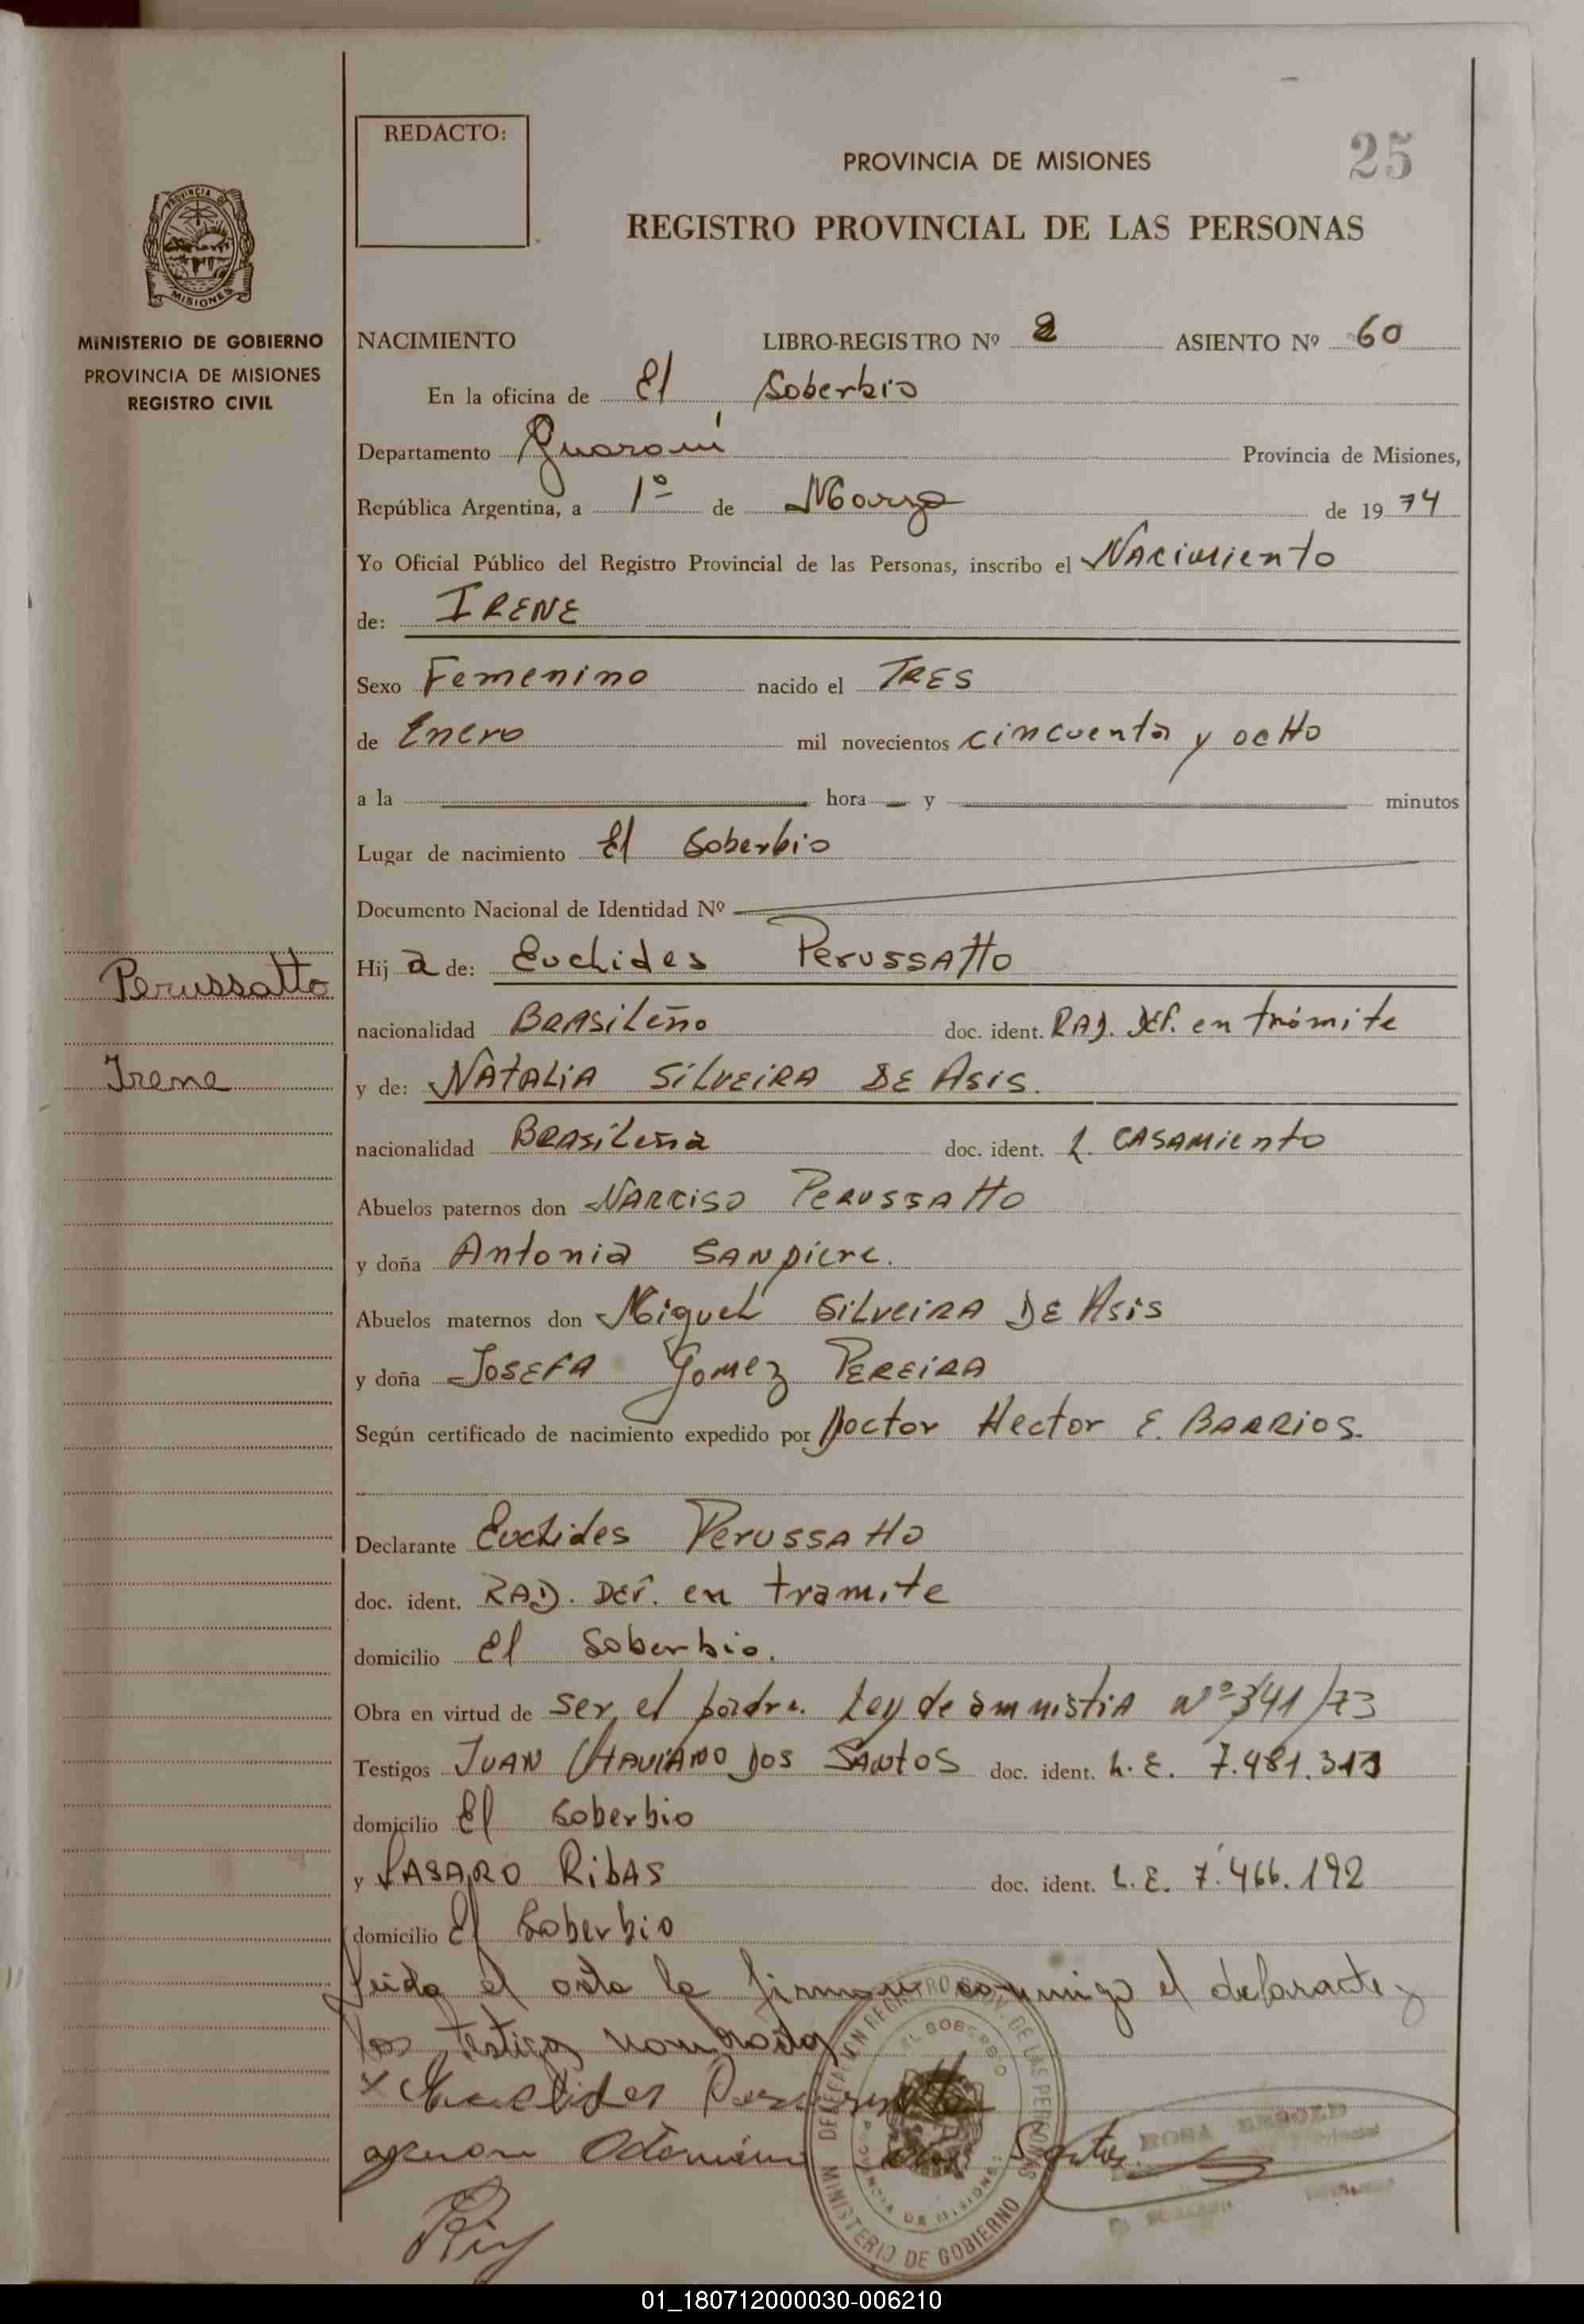 REDACTO:
25
PROVINCIA DE MISIONES
REGISTRO PROVINCIAL DE LAS PERSONAS
PROVINCIA DE
MISIONES
MINISTERIO DE GOBIERNO
PROVINCIA DE MISIONES
REGISTRO CIVIL
NACIMIENTO LIBRO-REGISTRO Nº 2 ASIENTO Nº 60
En la oficina de El Soberbio
Departamento Guaraní Provincia de Misiones,
República Argentina, a 1º de Marzo de 1974
Yo Oficial Público del Registro Provincial de las Personas, inscribo el Nacimiento
de: IRENE
Sexo Femenino nacido el TRES
de Enero mil novecientos cincuenta y ocho
a la hora y minutos
Lugar de nacimiento El Soberbio
Documento Nacional de Identidad Nº
Hija de: Euclides Perussatto
Perussatto
nacionalidad Brasileño doc. ident. RAD. DEF. en trámite
Irene
y de: NATALIA SILVEIRA DE Asis.
nacionalidad Brasileña doc. ident. L. CASAMIENTO
Abuelos paternos don NARCISO PERUSSATTO
y doña Antonia SANPIERE.
Abuelos maternos don Miguel SILVEIRA DE Asis
y doña JOSEFA Gomez PEREIRA
Según certificado de nacimiento expedido por Doctor Hector E. BARRIOS.
Declarante Euclides PerussATTO
doc. ident. RAD. DEF. en tramite
domicilio El Soberbio.
Obra en virtud de ser el padre. Ley de amnistia Nº 341/73
Testigos JUAN DOS SANTOS doc. ident. L. E. 7.481.313
domicilio El Soberbio
y LASARO RIBAS doc. ident. L. E. 7.466.192
domicilio El Soberbio
Leida el acta la firman conmigo el declarante y
los testigos nombrados
x Euclides Perussatto
Santos
DELEGACION REGISTRO PROV. DE LAS PERSONAS
EL SOBERBIO
PROVINCIA DE MISIONES
MINISTERIO DE GOBIERNO
ROSA
01_180712000030-006210